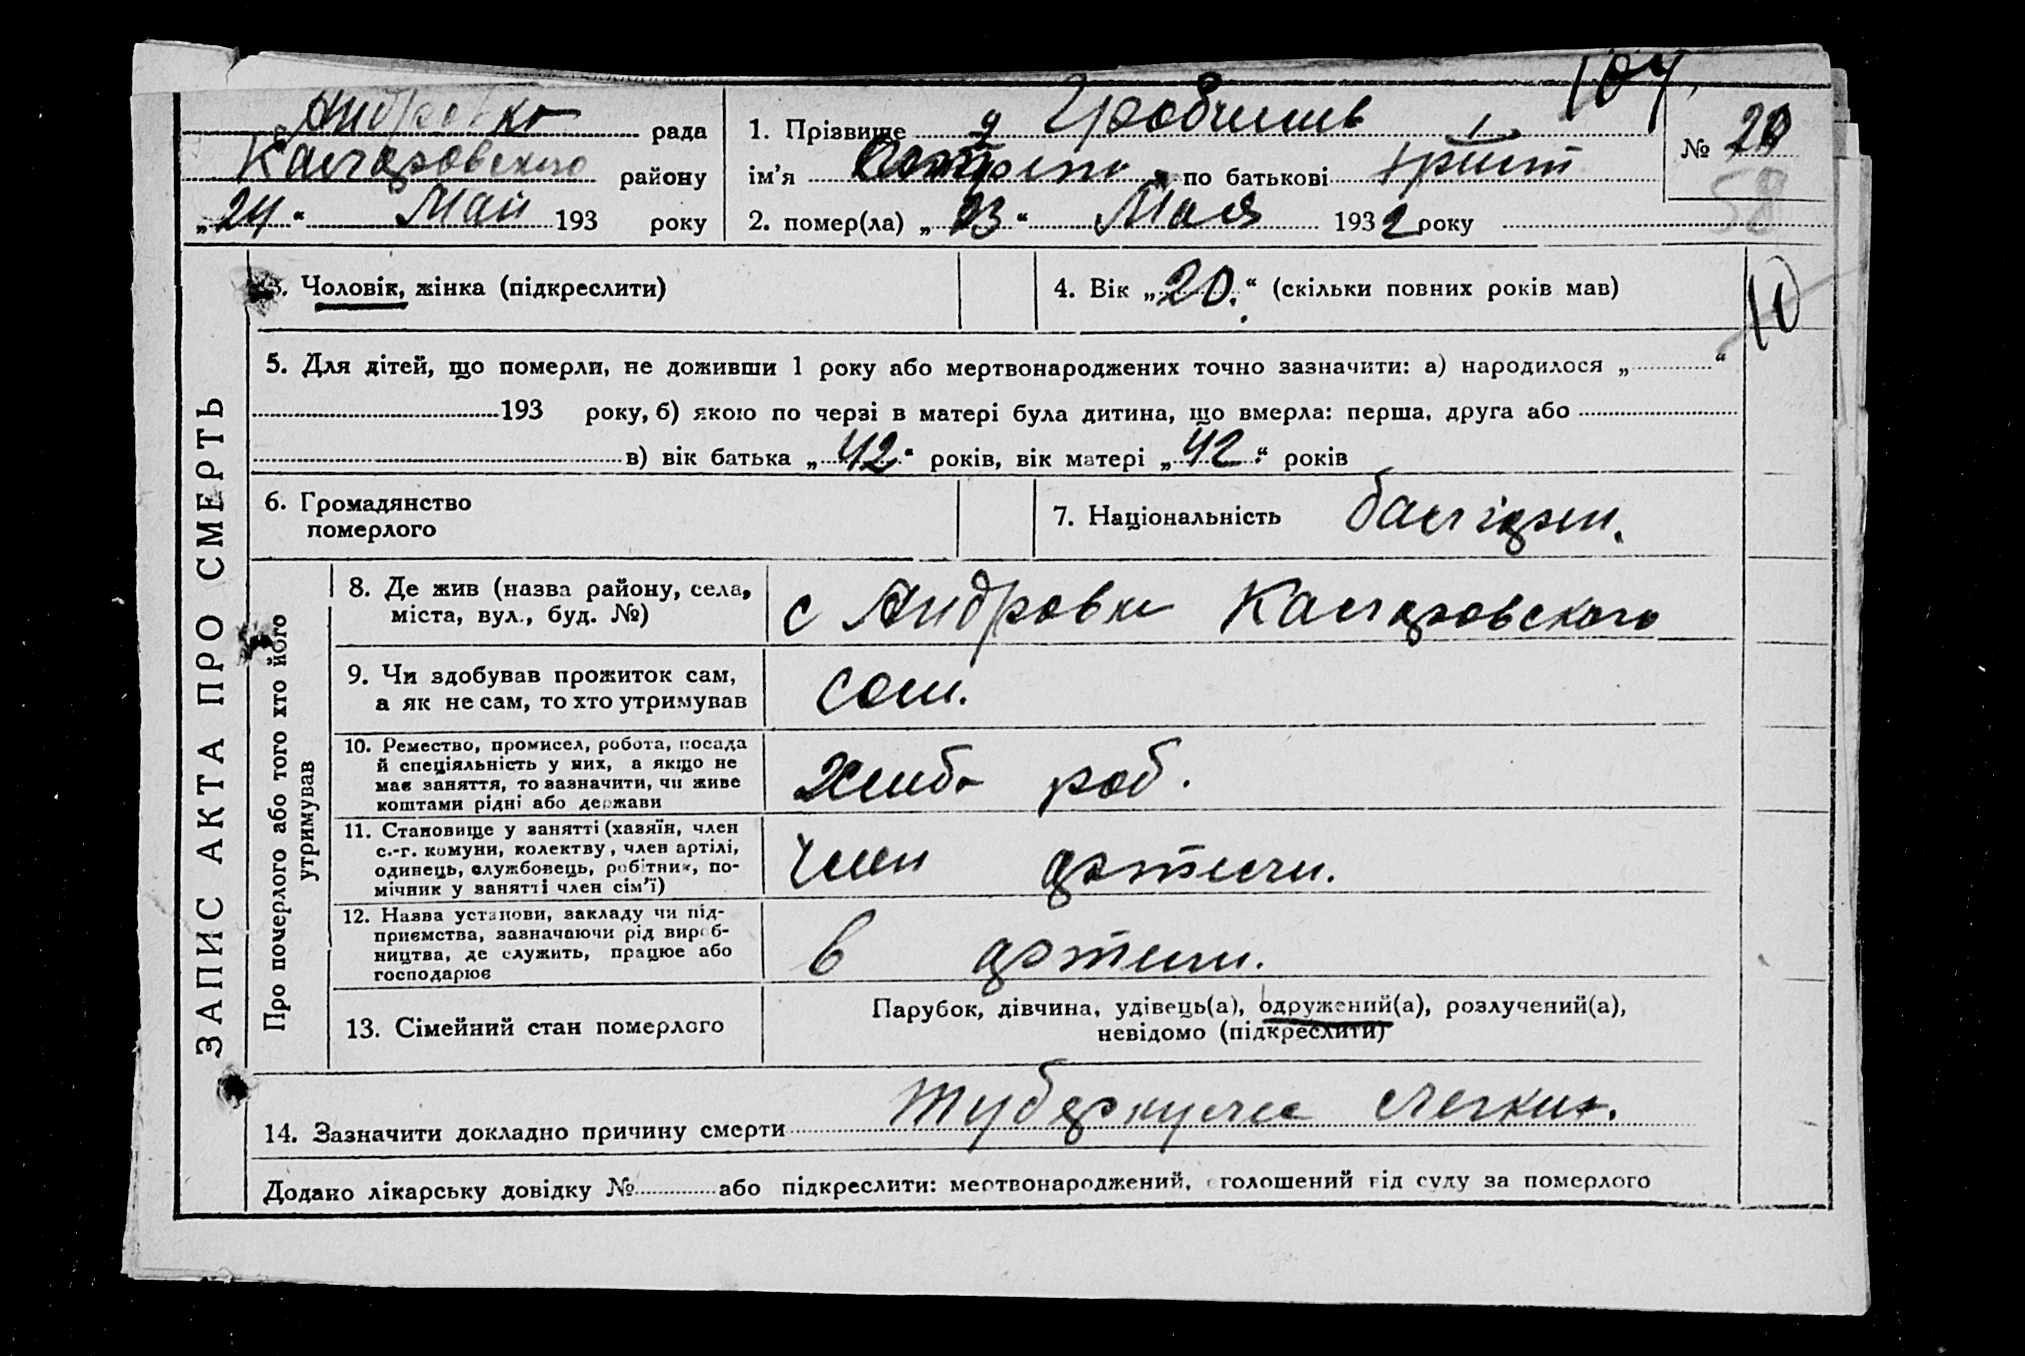 104
Андровка рада
1. Прізвище Гробчиив
№ 20
58
Калчаровского району
ім’я по батькові
„24“ Май 193 року
2. помер(ла) „23“ Мая 1932 року
3. Чоловік, жінка (підкреслити)
4. Вік „20.“ (скільки повних років мав)
10
5. Для дітей, що померли, не доживши 1 року або мертвонароджених точно зазначити: а) народилося „ “
193 року, б) якою по черзі в матері була дитина, що вмерла: перша, друга або
в) вік батька „42“ років, вік матері „42“ років
6. Громадянство
померлого
7. Національність
ЗАПИС АКТА ПРО СМЕРТЬ
Про померлого або того хто його
утримував
8. Де жив (назва району, села,
міста, вул., буд. №)
с Андровки Калчаровского
9. Чи здобував прожиток сам,
а як не сам, то хто утримував
сам.
10. Ремество, промисел, робота, посада
й спеціяльність у них, а якщо не
має заняття, то зазначити, чи живе
коштами рідні або держави
хлиб роб.
11. Становище у занятті (хазяїн, член
с.-г. комуни, колектву, член артілі,
одинець, службовець, робітник, по-
мічник у занятті член сім’ї)
член артели.
12. Назва установи, закладу чи під-
приємства, зазначаючи рід вироб-
ництва, де служить, працює або
господарює
в артели.
13. Сімейний стан померлого
Парубок, дівчина, удівець(а), одружений(а), розлучений(а),
невідомо (підкреслити)
14. Зазначити докладно причину смерти туберкулес легких.
Додано лікарську довідку № або підкреслити: мертвонароджений, оголошений від суду за померлого